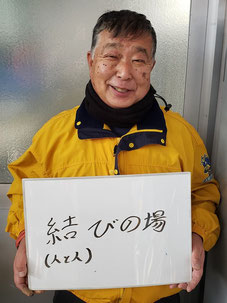 結びの場
(人と人)